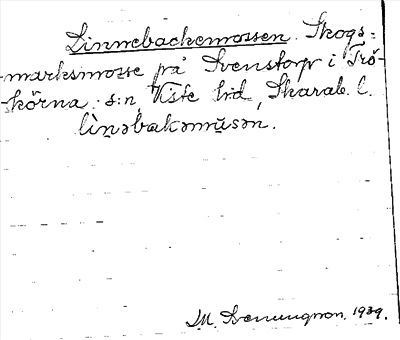 Linnebackemossen. Skogs=
marksmosse på Svenstorp i Trö-
körna s:n, Viste hd, Skarab. l.
lìnəbakəmūsən.
M. 1939.